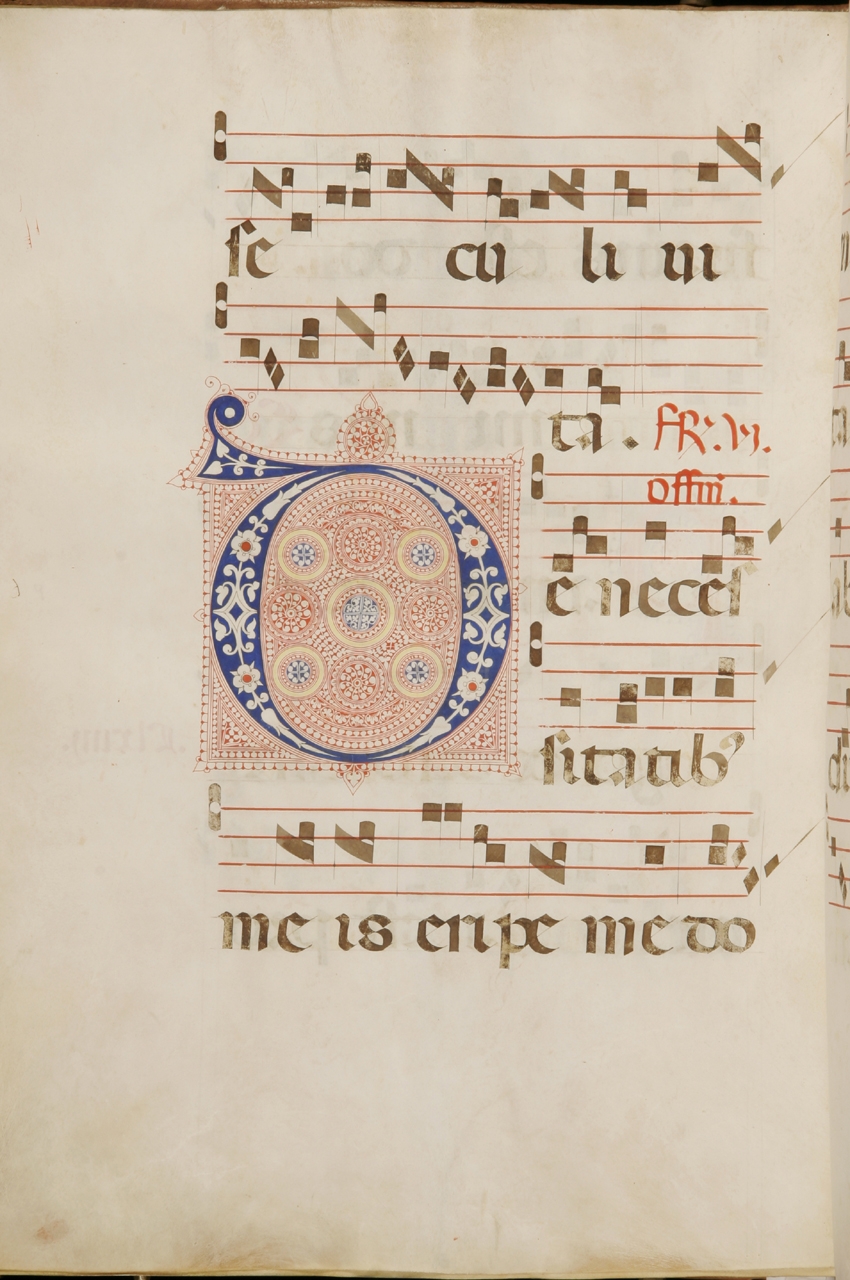 se cu li ui
ta . FR. VI.
offm̄.
De necess
sitatib⁹
me is eripe me do